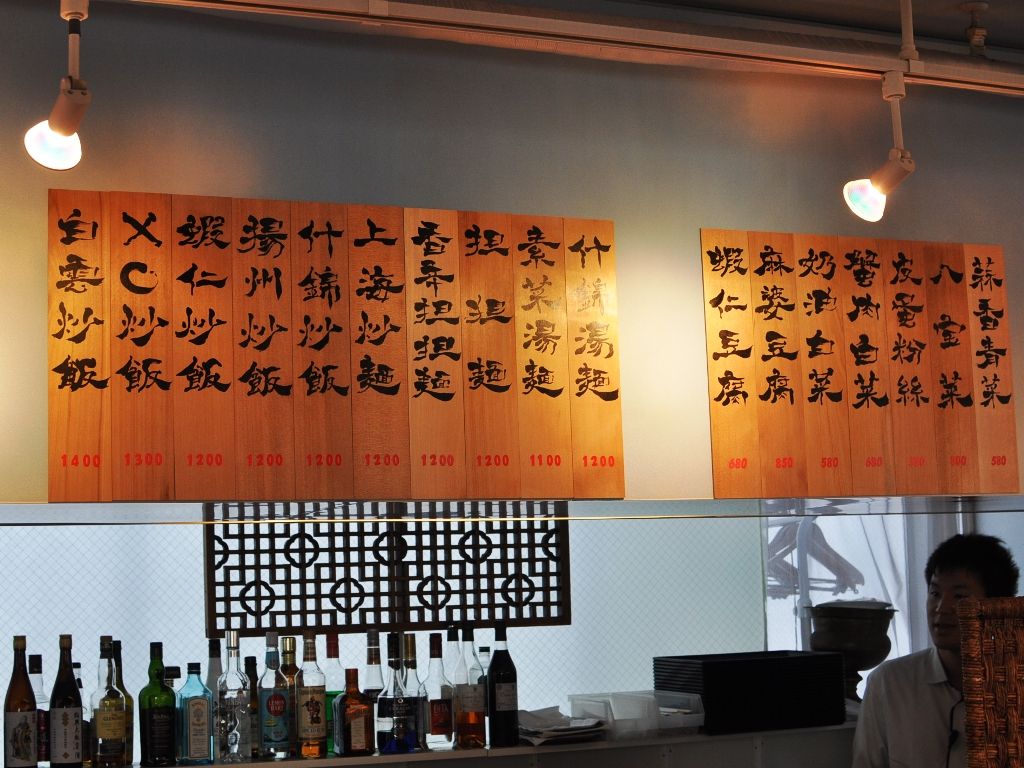 蒜香青菜
580
八宝菜
皮蛋粉絲
蟹肉白菜
680
奶油白菜
580
麻婆豆腐
850
蝦仁豆腐
680
什錦湯麺
1200
素菜湯麺
1100
担担麺
1200
香辛担担麺
1200
上海炒麺
1200
什錦炒飯
1200
揚州炒飯
1200
蝦仁炒飯
1200
XO炒飯
1300
白雲炒飯
1400